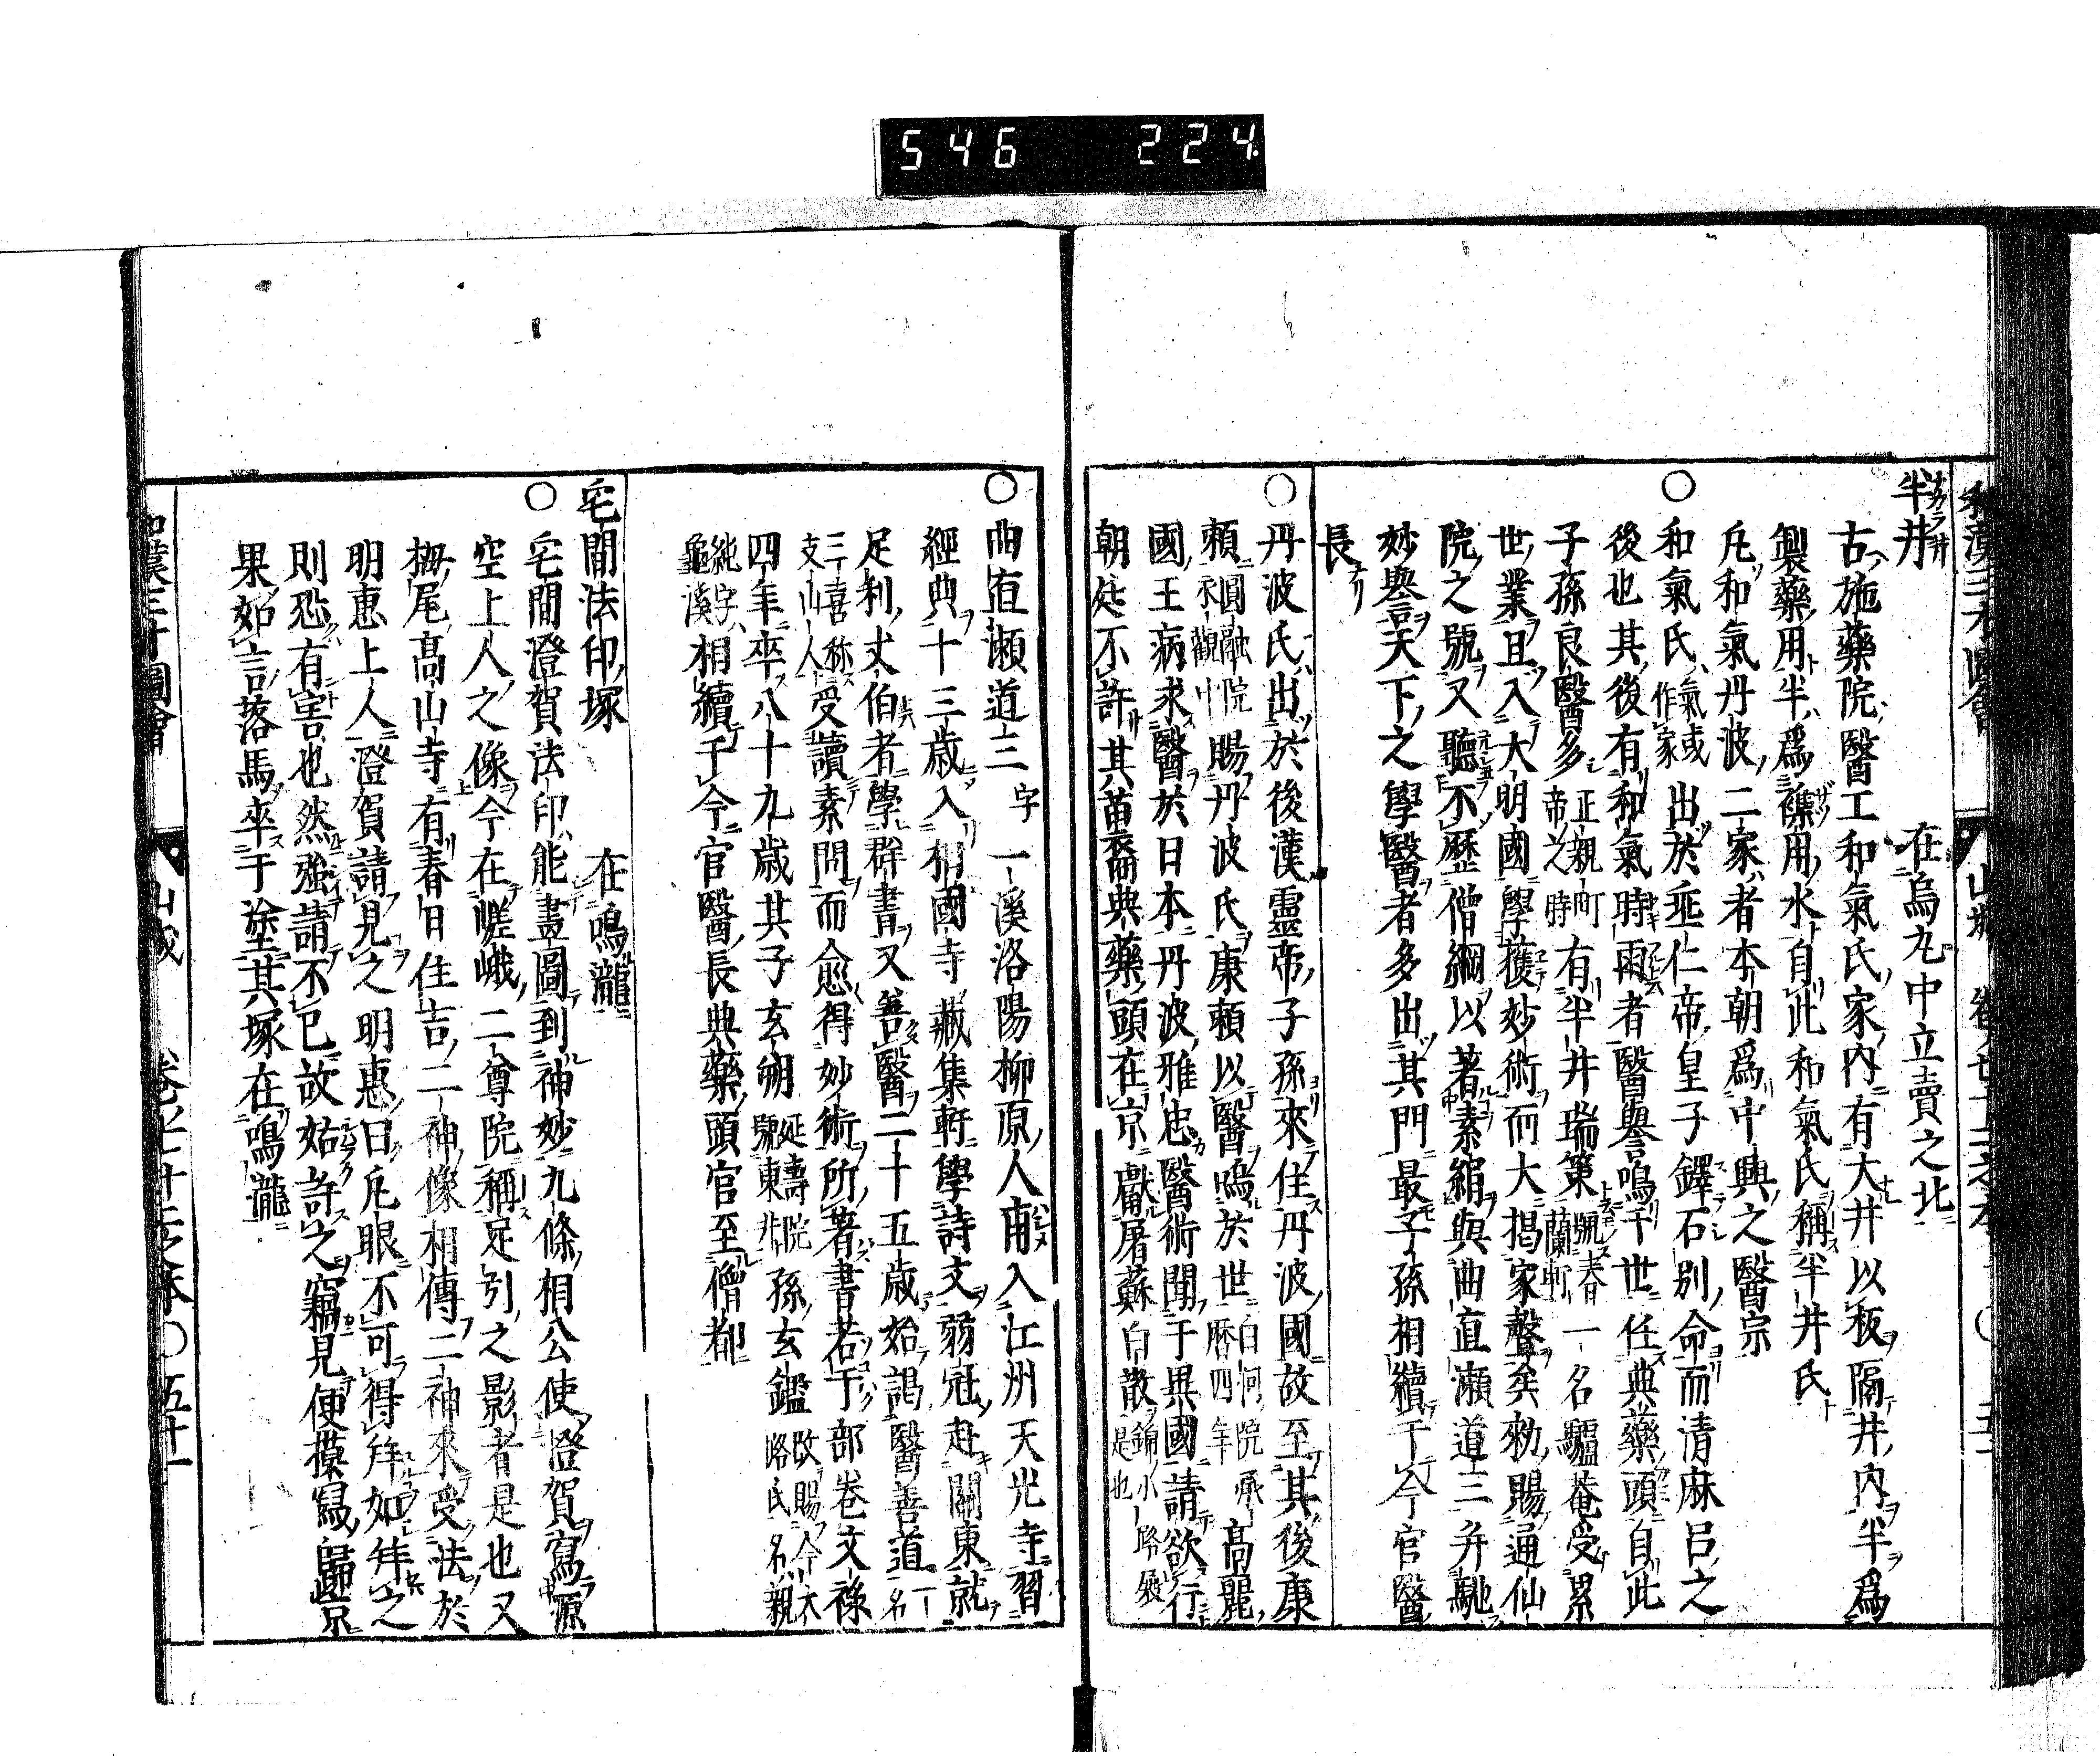 546 224
半井 在烏丸中立賣之北
古施藥院醫工和氣氏家内有大井以板隔井内半爲
製藥用半爲雜用水自此和氣氏稱半井氏
凡和氣丹波二家者本朝爲中興之醫宗
○和氣氏氣或作家出於垂仁帝皇子鐸石別命而清麻呂之
後也其後有和氣時雨者醫譽鳴于世任典藥頭自此
子孫良醫多正親町帝之時有半井瑞策號春蘭軒一名驢菴受累
世業且入大明國學獲妙術而大揭家聲矣勅賜通仙
院之號又聽不歷僧綱以著素絹與曲直瀬道三并馳
妙譽天下之學醫者多出其門最子孫相續于今官醫
長
○丹波氏出於後漢靈帝子孫來住丹波國故至其後康
頼圓融院永觀中賜丹波氏康頼以醫鳴於世白河院承暦四年高麗
國王病求醫於日本丹波雅忠醫術聞于異國請欲行
朝廷不許其苗裔典藥頭在京獻屠蘇白散錦小路殿是也
○曲直瀬道三字一溪洛陽柳原人甫入江州天光寺習
經典十三歳入相國寺藏集軒學詩文弱冠赴關東就
足利丈伯者學群書又善醫二十五歳始謁醫善道名一
三喜称支山人受讀素問而愈得妙術所著書若干部巻文禄
四年卒八十九歳其子玄朔延壽院號東井孫玄鑑改賜今大路氏名親
純字龜溪相續于今官醫長典藥頭官至僧都
宅間法印塚 在鳴瀧
宅間澄賀法印能畫圖到神妙九條相公使澄賀寫源
空上人之像今在嵯峨二尊院稱足引之影者是也又
栂尾高山寺有春日住吉二神像相傳二神來受法於
明惠上人澄賀請見之明惠曰凡眼不可得拜如拜之
則恐有害也然強請不已故姑許之竊見便摸寫歸京
果如言落馬卒于塗其塚在鳴瀧
五十一